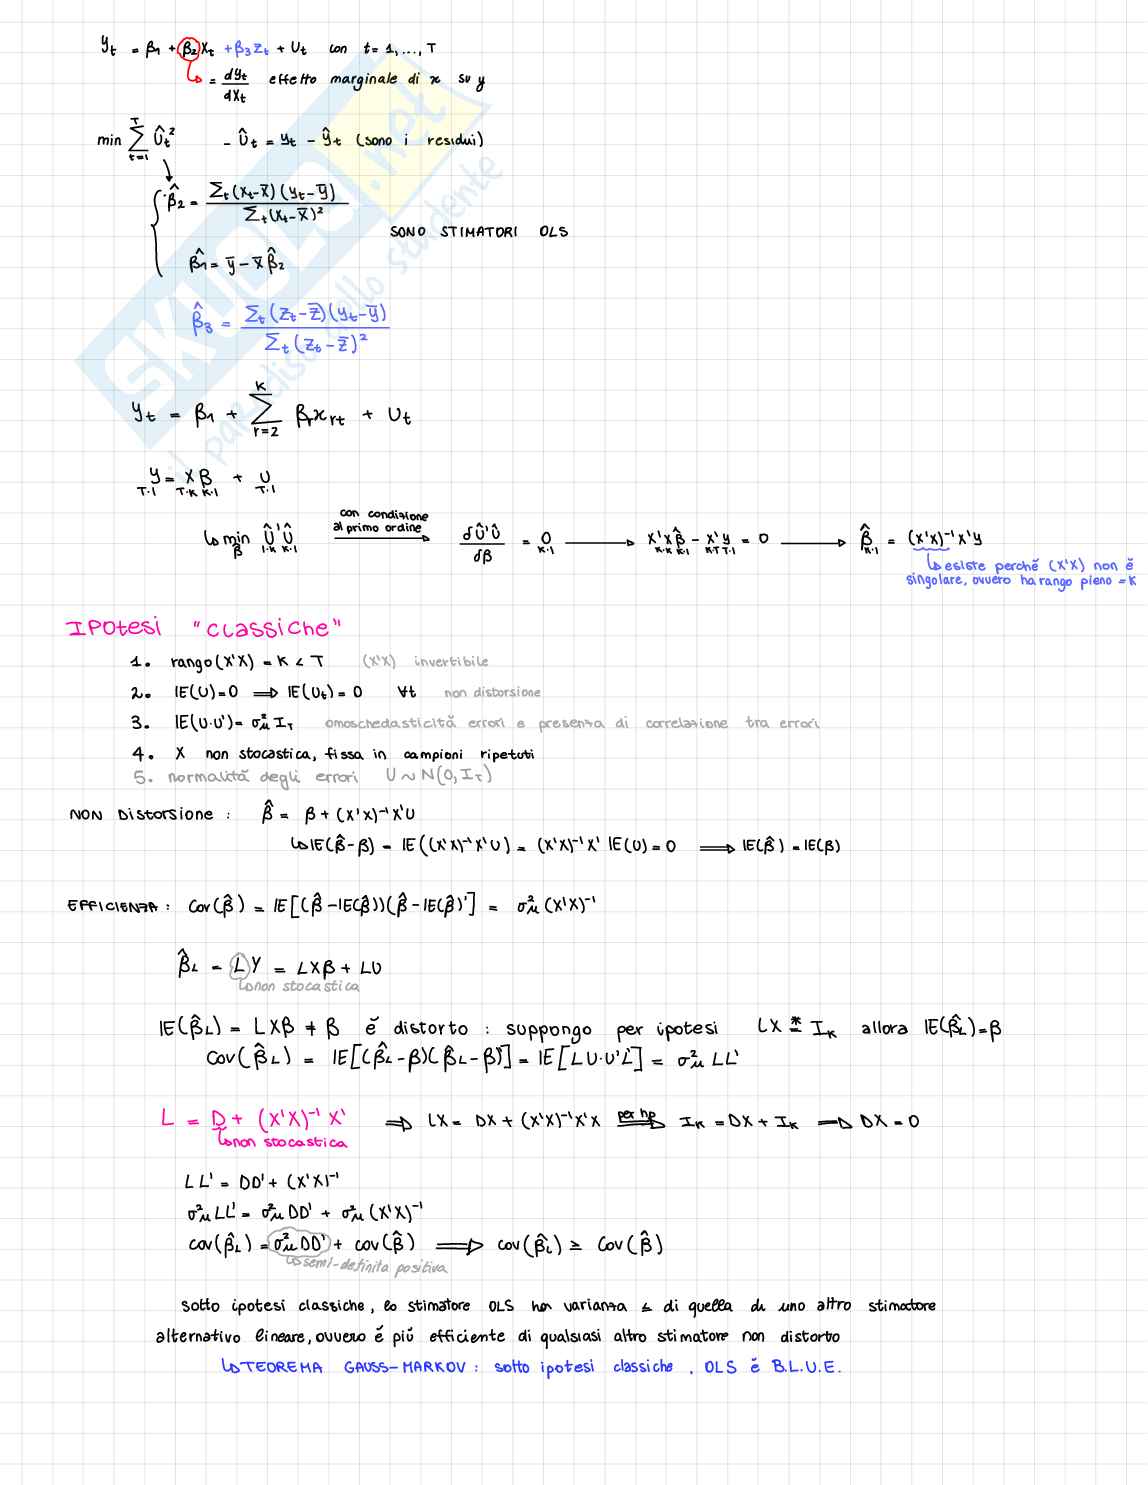 y_t = β_1 + β_2 x_t + β_3 z_t + U_t con t = 1, ..., T
= dy_t / dx_t effetto marginale di x su y
min Σ_{t=1}^{T} Û_t² - Û_t = y_t - ŷ_t (sono i residui)
β̂_2 = Σ_t (x_t - x̄)(y_t - ȳ) / Σ_t (x_t - x̄)²
SONO STIMATORI OLS
β̂_1 = ȳ - x̄ β̂_2
β̂_3 = Σ_t (z_t - z̄)(y_t - ȳ) / Σ_t (z_t - z̄)²
y_t = β_1 + Σ_{r=2}^{K} β_r x_{rt} + U_t
y = Xβ + U
T·1 T·K K·1 T·1
↳ min_β Û'Û con condizione al primo ordine → δÛ'Û / δβ = 0 → X'Xβ̂ - X'y = 0 → β̂ = (X'X)⁻¹X'y
1·K K·1 K·1 K·K K·1 K·T T·1 K·1
↳ esiste perché (X'X) non è
singolare, ovvero ha rango pieno = K
IPOTESI "CLASSICHE"
1. rango(X'X) = K < T (X'X) invertibile
2. IE(U) = 0 ⟹ IE(U_t) = 0 ∀t non distorsione
3. IE(U·U') = σ²_μ I_T omoschedasticità errori e presenza di correlazione tra errori
4. X non stocastica, fissa in campioni ripetuti
5. normalità degli errori U ~ N(0, I_T)
NON DISTORSIONE: β̂ = β + (X'X)⁻¹X'U
↳ IE(β̂ - β) = IE((X'X)⁻¹X'U) = (X'X)⁻¹X' IE(U) = 0 ⟹ IE(β̂) = IE(β)
EFFICIENZA: Cov(β̂) = IE[(β̂ - IE(β̂))(β̂ - IE(β̂)'] = σ²_μ (X'X)⁻¹
β̂_L = LY = LXβ + LU
↳ non stocastica
IE(β̂_L) = LXβ ≠ β è distorto : suppongo per ipotesi LX =* I_K allora IE(β̂_L) = β
Cov(β̂_L) = IE[(β̂_L - β)(β̂_L - β)'] = IE[LU·U'L'] = σ²_μ LL'
L = D + (X'X)⁻¹X' ⟹ LX = DX + (X'X)⁻¹X'X per hp ⟹ I_K = DX + I_K ⟹ DX = 0
↳ non stocastica
LL' = DD' + (X'X)⁻¹
σ²_μ LL' = σ²_μ DD' + σ²_μ (X'X)⁻¹
cov(β̂_L) = σ²_μ DD' + cov(β̂) ⟹ cov(β̂_L) ≥ Cov(β̂)
↳ semi-definita positiva
sotto ipotesi classiche, lo stimatore OLS ha varianza ≤ di quella di uno altro stimatore
alternativo lineare, ovvero è più efficiente di qualsiasi altro stimatore non distorto
↳ TEOREMA GAUSS-MARKOV: sotto ipotesi classiche, OLS è B.L.U.E.
SKUOLA.net
il paradiso dello studente